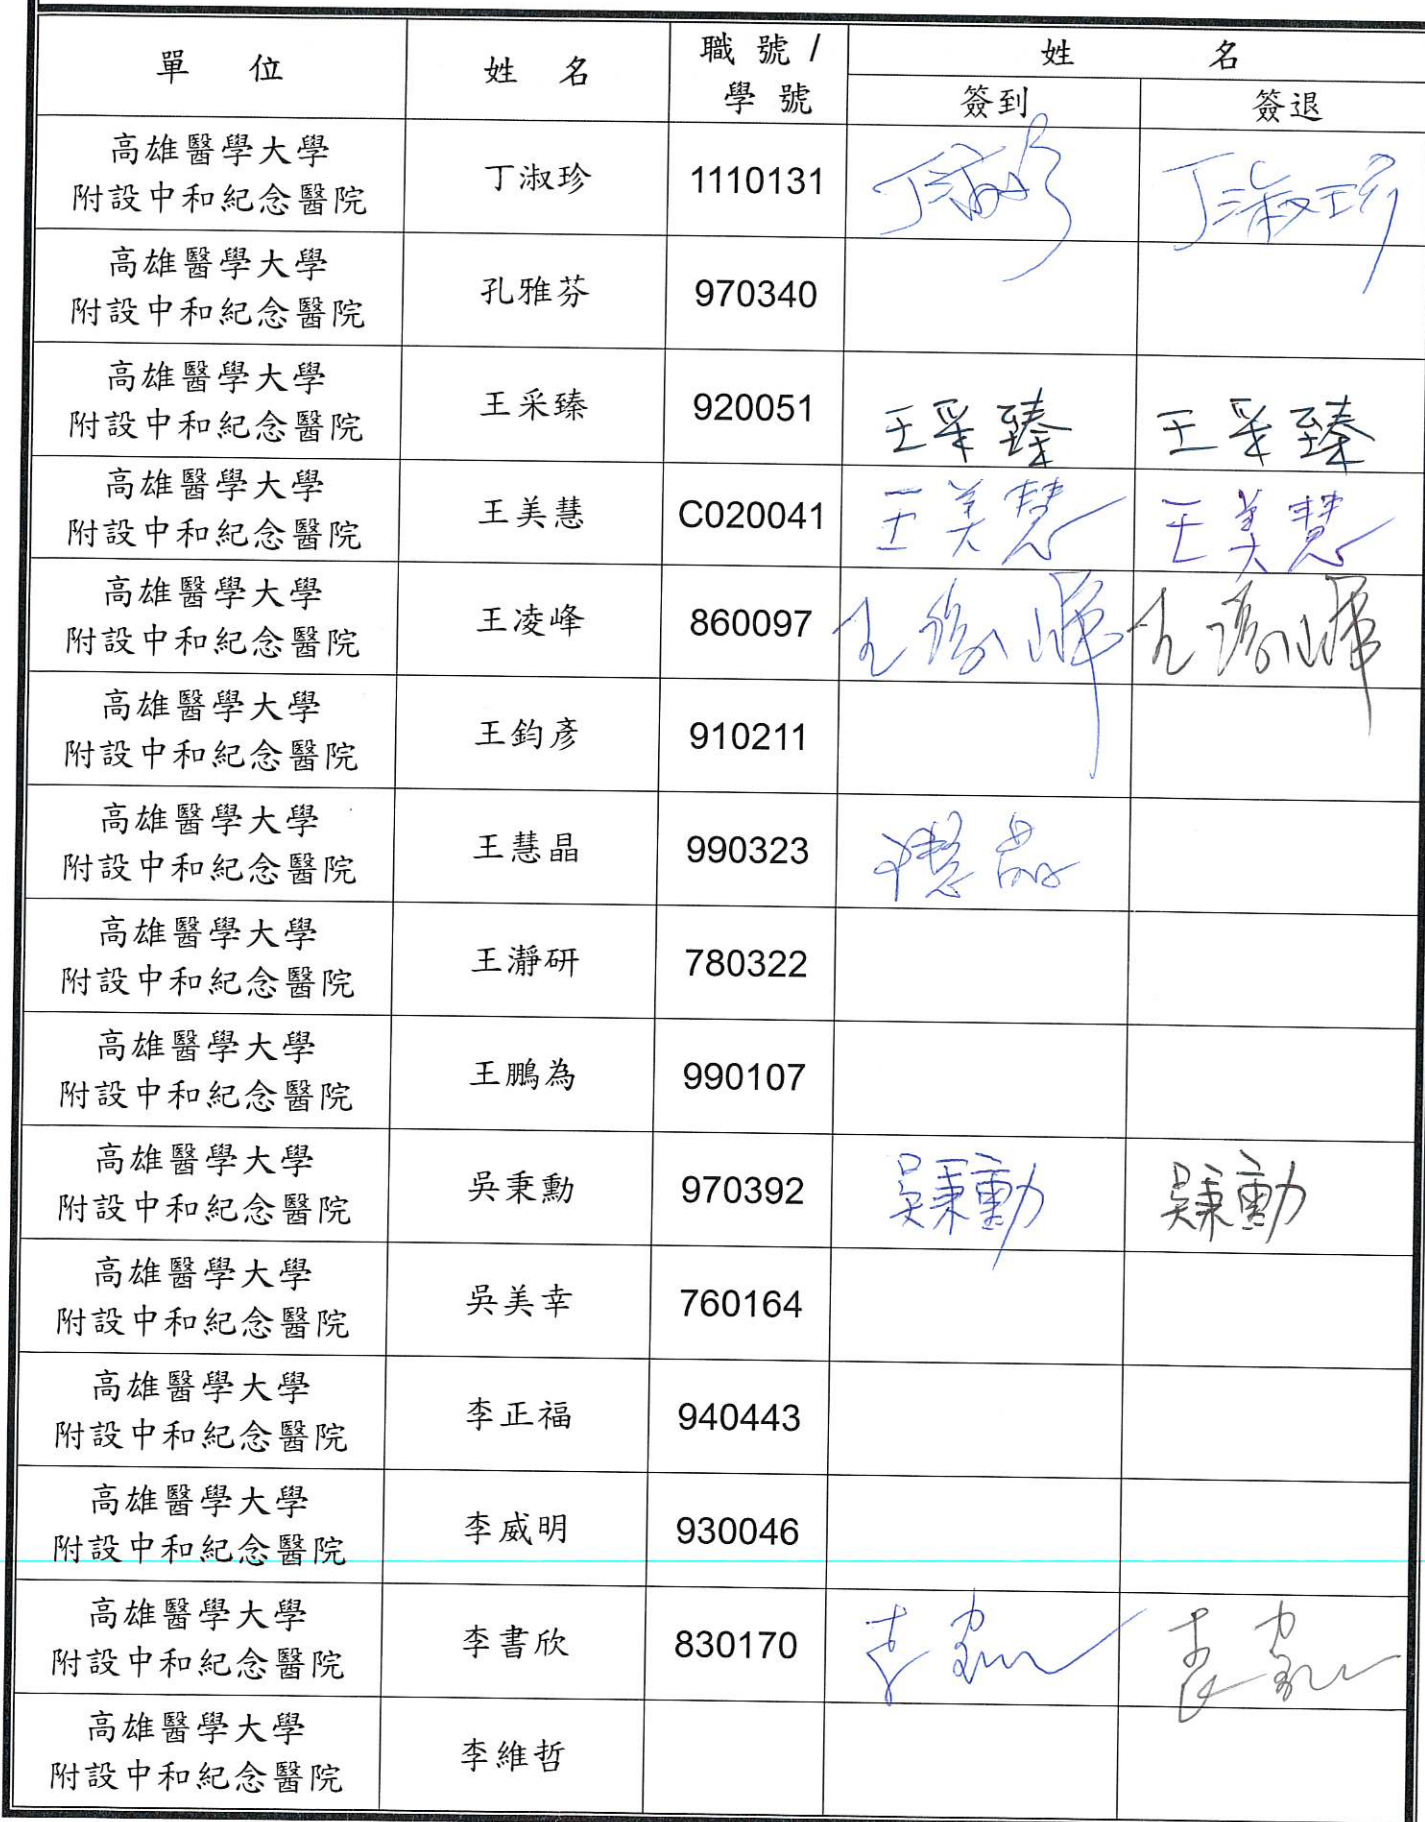 單 位 姓 名 職 號 / 姓 名
學 號 簽到 簽退
高雄醫學大學
附設中和紀念醫院 丁淑珍 1110131 丁淑珍 丁淑珍
高雄醫學大學
附設中和紀念醫院 孔雅芬 970340
高雄醫學大學
附設中和紀念醫院 王采臻 920051 王采臻 王采臻
高雄醫學大學
附設中和紀念醫院 王美慧 C020041 王美慧 王美慧
高雄醫學大學
附設中和紀念醫院 王凌峰 860097 王凌峰 王凌峰
高雄醫學大學
附設中和紀念醫院 王鈞彥 910211
高雄醫學大學
附設中和紀念醫院 王慧晶 990323 王慧晶
高雄醫學大學
附設中和紀念醫院 王瀞研 780322
高雄醫學大學
附設中和紀念醫院 王鵬為 990107
高雄醫學大學
附設中和紀念醫院 吳秉勳 970392 吳秉勳 吳秉勳
高雄醫學大學
附設中和紀念醫院 吳美幸 760164
高雄醫學大學
附設中和紀念醫院 李正福 940443
高雄醫學大學
附設中和紀念醫院 李威明 930046
高雄醫學大學
附設中和紀念醫院 李書欣 830170
高雄醫學大學
附設中和紀念醫院 李維哲